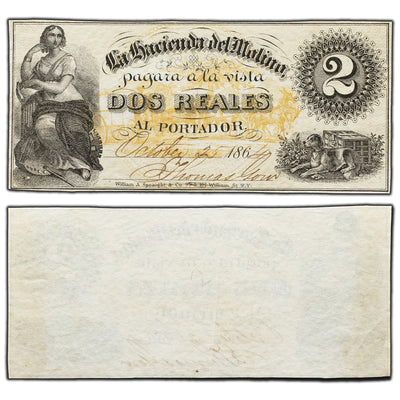 La Hacienda del Molino,
pagará a la vista
2
DOS REALES
AL PORTADOR.
October 25 186
Thomas
William A. Spenight & Co.
William St. N.Y.